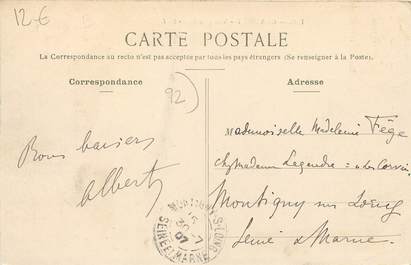 12€
CARTE POSTALE
La Correspondance au recto n'est pas acceptée par tous les pays étrangers (Se renseigner à la Poste).
Correspondance
Adresse
92
Mademoiselle Madeleine Fège
chez Madame Legendre
Bons baisers
Albert
Montigny sur Loing
Seine & Marne
MONTIGNY-S-LOING
15
30-7
07
SEINE ET MARNE